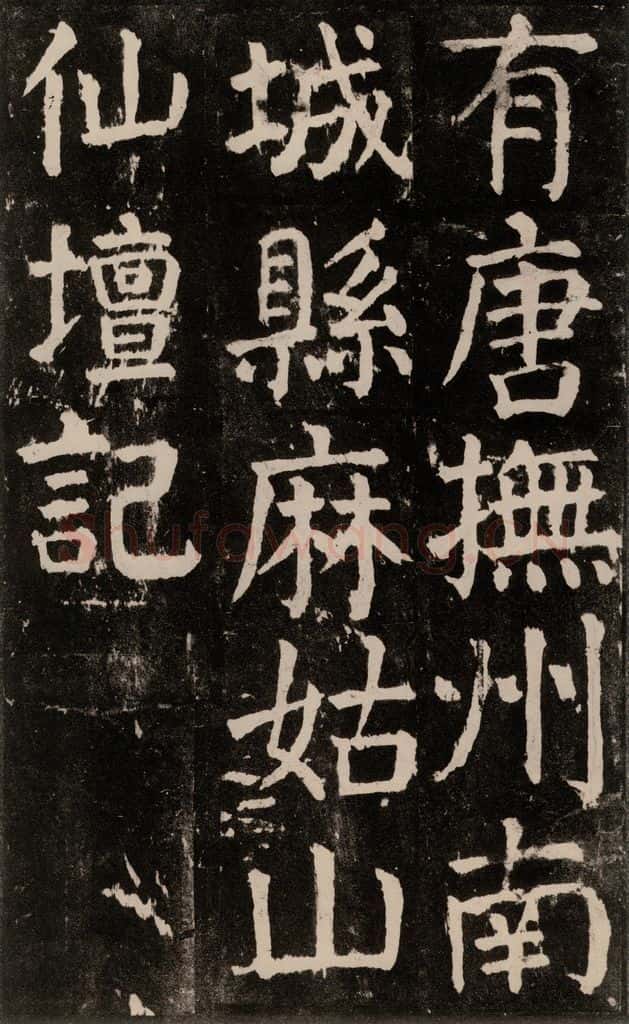 有唐撫州南
城縣麻姑山
仙壇記
Shufawang.CN